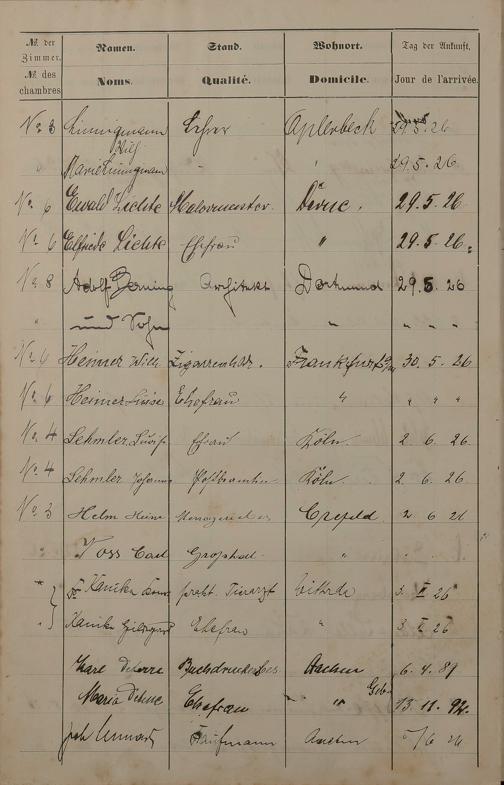 № der Zimmer. Namen. Stand. Wohnort. Tag der Ankunft.
№ des chambres Noms. Qualité. Domicile. Jour de l'arrivée.
No. 8 Linnigmann Lehrer Aplerbeck 29.5.26
Wilh
Marie Linnigmann - " 29.5.26
No. 6 Ewald Lichte Malermeister. 29.5.26.
No. 6 Elfriede Lichte Ehefrau " 29.5.26.
No. 8 Adolf Berning Architekt Dortmund 29.5.26
" und Sohn " " " "
No. 6 Heimer Wilh. Zigarrenhdr. Frankfurt a/M 30.5.26
No. 6 Heimer Luise Ehefrau " " " "
No. 4 Sehmler Luise Ehefrau Köln 2.6.26.
No. 4 Sehmler Johannes Postbeamter Köln. 2.6.26.
No. 3 Helm Heinr Crefeld 2 6 26
" Voss Carl "
" Dr Kanike prakt. Tierarzt 3. II 26
" Kanike Hildegard Ehefrau " 3 II 26
Karl Aachen 6.4.89
Maria Ehefrau " " Geb. 13.11.92.
Joh Lennartz Kaufmann Aachen /6 26